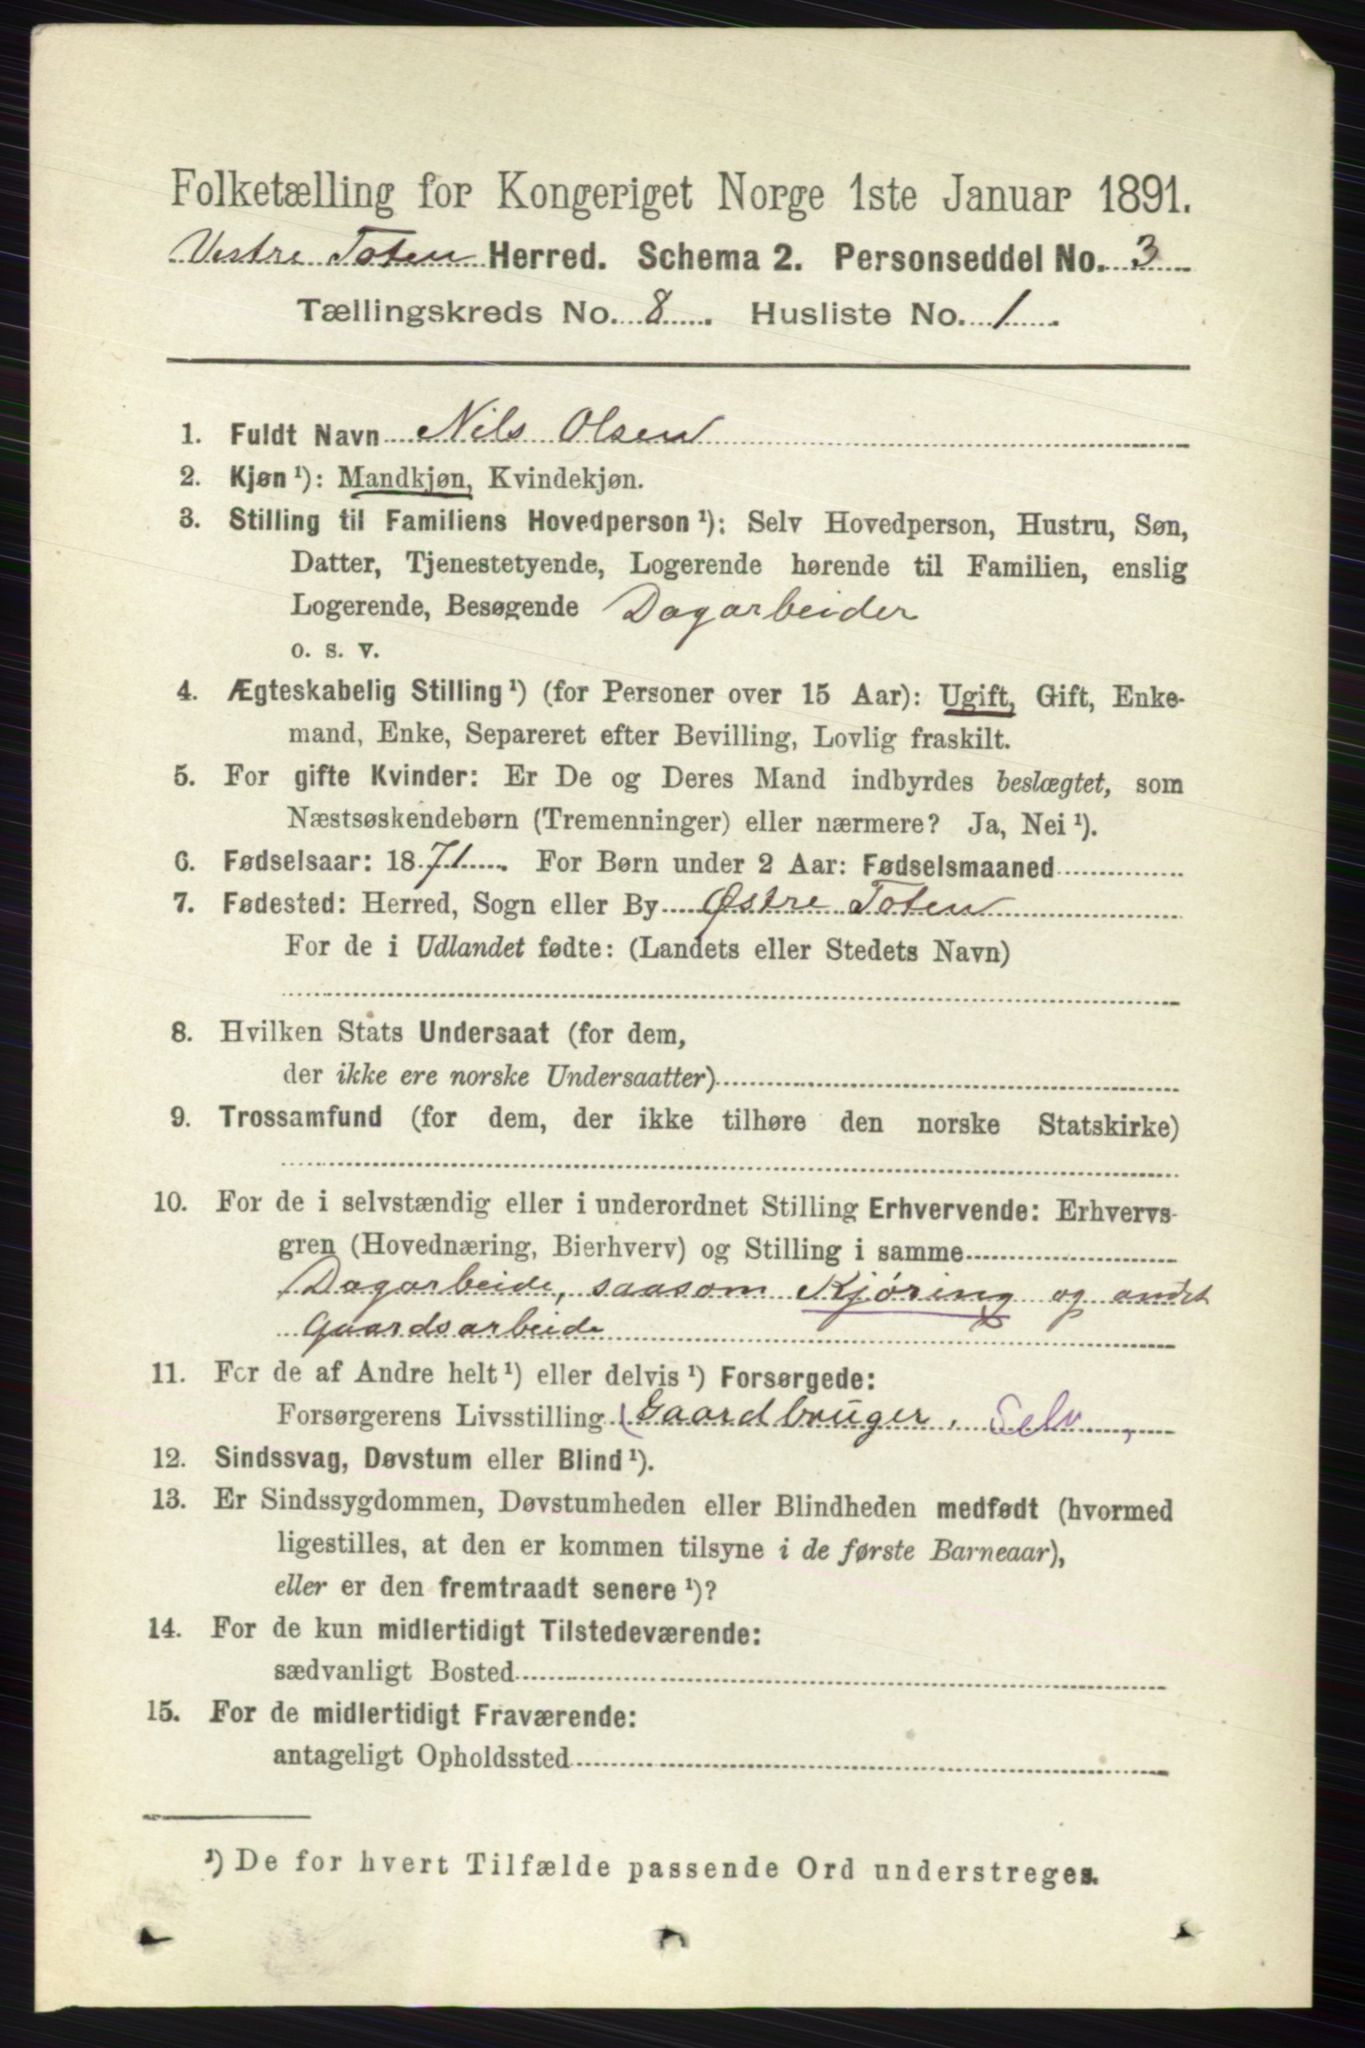 Folketælling for Kongeriget Norge 1ste Januar 1891.
Vestre Toten Herred. Schema 2. Personseddel No. 3
Tællingskreds No. 8. Husliste No. 1.
1. Fuldt Navn Nils Olsen
2. Kjøn ¹): Mandkjøn, Kvindekjøn.
3. Stilling til Familiens Hovedperson ¹): Selv Hovedperson, Hustru, Søn,
Datter, Tjenestetyende, Logerende hørende til Familien, enslig
Logerende, Besøgende Dagarbeider
o. s. v.
4. Ægteskabelig Stilling ¹) (for Personer over 15 Aar): Ugift, Gift, Enke-
mand, Enke, Separeret efter Bevilling, Lovlig fraskilt.
5. For gifte Kvinder: Er De og Deres Mand indbyrdes beslægtet, som
Næstsøskendebørn (Tremenninger) eller nærmere? Ja, Nei ¹).
6. Fødselsaar: 1871. For Børn under 2 Aar: Fødselsmaaned
7. Fødested: Herred, Sogn eller By Østre Toten
For de i Udlandet fødte: (Landets eller Stedets Navn)
8. Hvilken Stats Undersaat (for dem,
der ikke ere norske Undersaatter)
9. Trossamfund (for dem, der ikke tilhøre den norske Statskirke)
10. For de i selvstændig eller i underordnet Stilling Erhvervende: Erhvervs-
gren (Hovednæring, Bierhverv) og Stilling i samme
Dagarbeide, saasom Kjøring og andet
Gaardsarbeide
11. For de af Andre helt ¹) eller delvis ¹) Forsørgede:
Forsørgerens Livsstilling (Gaardbruger, Selv,
12. Sindssvag, Døvstum eller Blind ¹).
13. Er Sindssygdommen, Døvstumheden eller Blindheden medfødt (hvormed
ligestilles, at den er kommen tilsyne i de første Barneaar),
eller er den fremtraadt senere ¹)?
14. For de kun midlertidigt Tilstedeværende:
sædvanligt Bosted
15. For de midlertidigt Fraværende:
antageligt Opholdssted
¹) De for hvert Tilfælde passende Ord understreges.